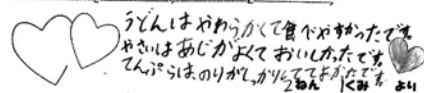 うどんはやわらかくて食べやすかったです。
やさいはあじがよくておいしかったです。
てんぷらは、のりがしっかりしててよかたです。
2ねん 1くみ より